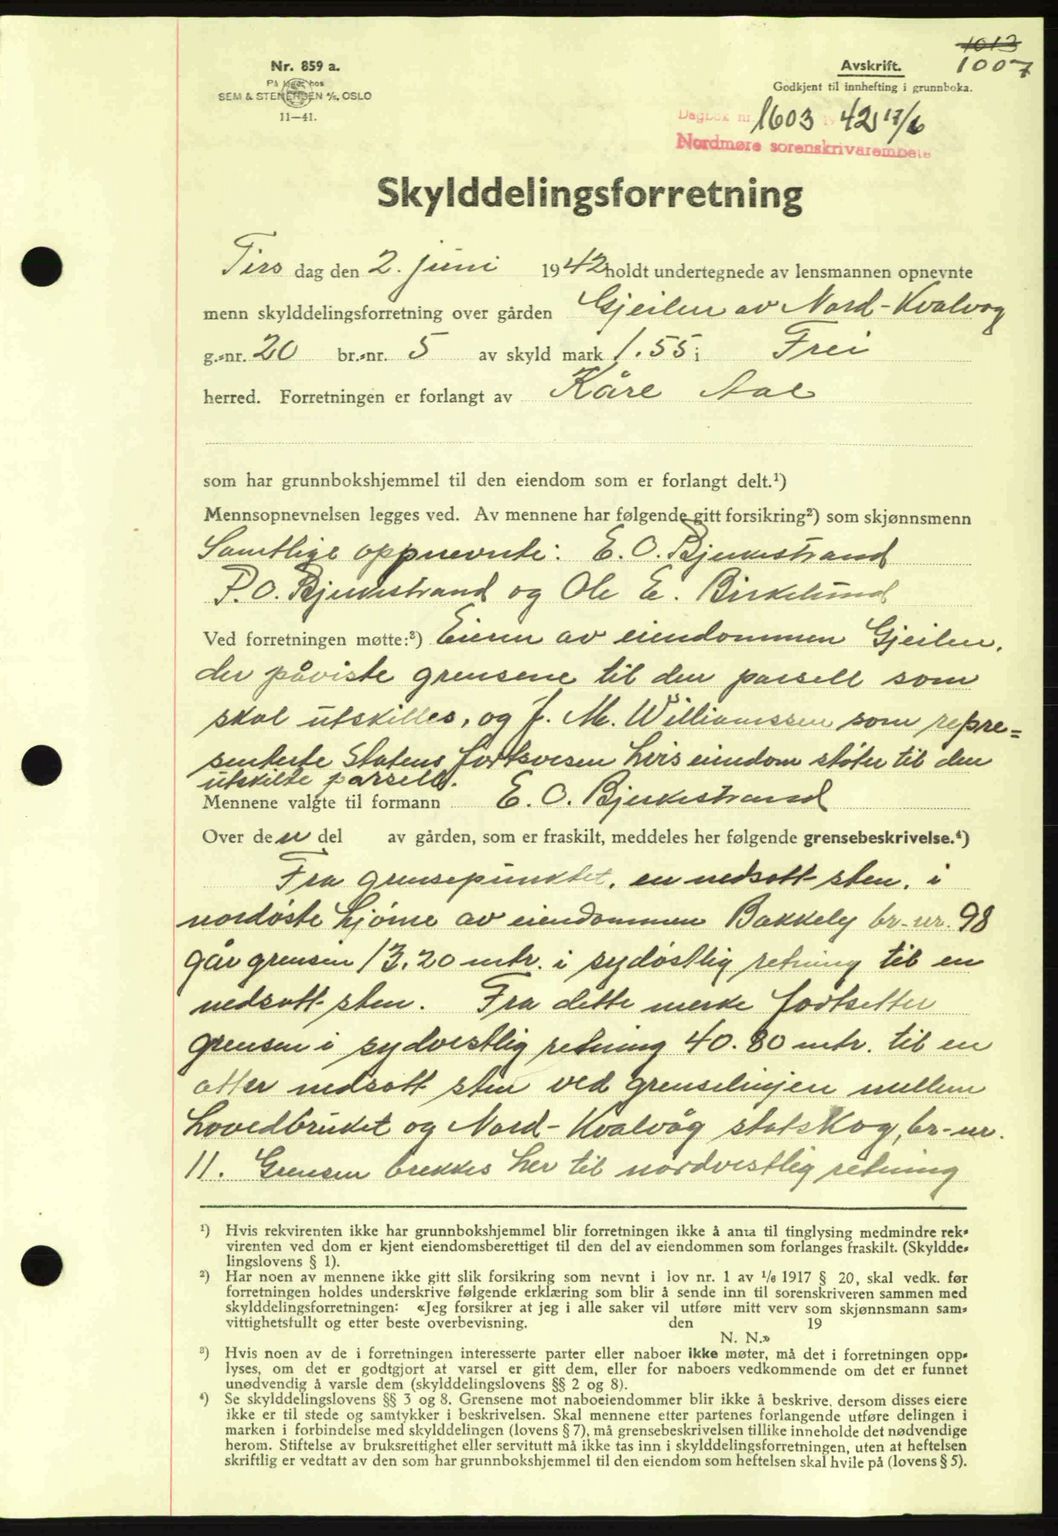 1013
1007
Nr. 859 a.
På lager hos
SEM & STENERSEN A/S, OSLO
11—41.
Avskrift.
Godkjent til innhefting i grunnboka.
Dagbok nr. 1603 1942 17/6
Nordmøre sorenskrivarembete
Skylddelingsforretning
Tirs dag den 2. juni 1942 holdt undertegnede av lensmannen opnevnte
menn skylddelingsforretning over gården Gjeilen av Nord-Kvalvog
g.-nr. 20 br.-nr. 5 av skyld mark 1.55 i Frei
herred. Forretningen er forlangt av Kåre Aae
som har grunnbokshjemmel til den eiendom som er forlangt delt.¹)
Mennsopnevnelsen legges ved. Av mennene har følgende gitt forsikring²) som skjønnsmenn
Samtlige oppnevnte: E. O. Bjerkestrand
P. O. Bjerkestrand og Ole E. Birkelund
Ved forretningen møtte:³) Eieren av eiendommen Gjeilen,
der påviste grensene til den parsell som
skal utskilles, og J. M. Williamssen som repre=
senterte Statens skogvesen hvis eiendom støter til den
utskilte parsell.
Mennene valgte til formann E. O. Bjerkestrand
Over den del av gården, som er fraskilt, meddeles her følgende grensebeskrivelse.⁴)
Fra grensepunktet, en nedsatt sten, i
nordøste hjørne av eiendommen Bakkely br.-nr. 98
går grensen 13,20 mtr. i sydøstlig retning til en
nedsatt sten. Fra dette merke fortsetter
grensen i sydvestlig retning 40.80 mtr. til en
atter nedsatt sten ved grenselinjen mellem
hovedbruket og Nord-Kvalvåg statskog, br-nr.
11. Grensen brekkes her til nordvestlig retning
¹) Hvis rekvirenten ikke har grunnbokshjemmel blir forretningen ikke å anta til tinglysing medmindre rek-
virenten ved dom er kjent eiendomsberettiget til den del av eiendommen som forlanges fraskilt. (Skyldde-
lingslovens § 1).
²) Har noen av mennene ikke gitt slik forsikring som nevnt i lov nr. 1 av 1/6 1917 § 20, skal vedk. før
forretningen holdes underskrive følgende erklæring som blir å sende inn til sorenskriveren sammen med
skylddelingsforretningen: «Jeg forsikrer at jeg i alle saker vil utføre mitt verv som skjønnsmann sam-
vittighetsfullt og etter beste overbevisning. den 19
N. N.»
³) Hvis noen av de i forretningen interesserte parter eller naboer ikke møter, må det i forretningen opp-
lyses, om det er godtgjort at varsel er gitt dem, eller for naboers vedkommende om det er funnet
unødvendig å varsle dem (skylddelingslovens §§ 2 og 8).
⁴) Se skylddelingslovens §§ 3 og 8. Grensene mot naboeiendommer blir ikke å beskrive, dersom disses eiere
ikke er til stede og samtykker i beskrivelsen. Skal mennene etter partenes forlangende utføre delingen i
marken i forbindelse med skylddelingen (lovens § 7), må grensebeskrivelsen tillike inneholde det nødvendige
herom. Stiftelse av bruksrettighet eller servitutt må ikke tas inn i skylddelingsforretningen, uten at heftelsen
skriftlig er vedtatt av den som har grunnbokshjemmel til den eiendom som heftelsen skal hvile på (lovens § 5).